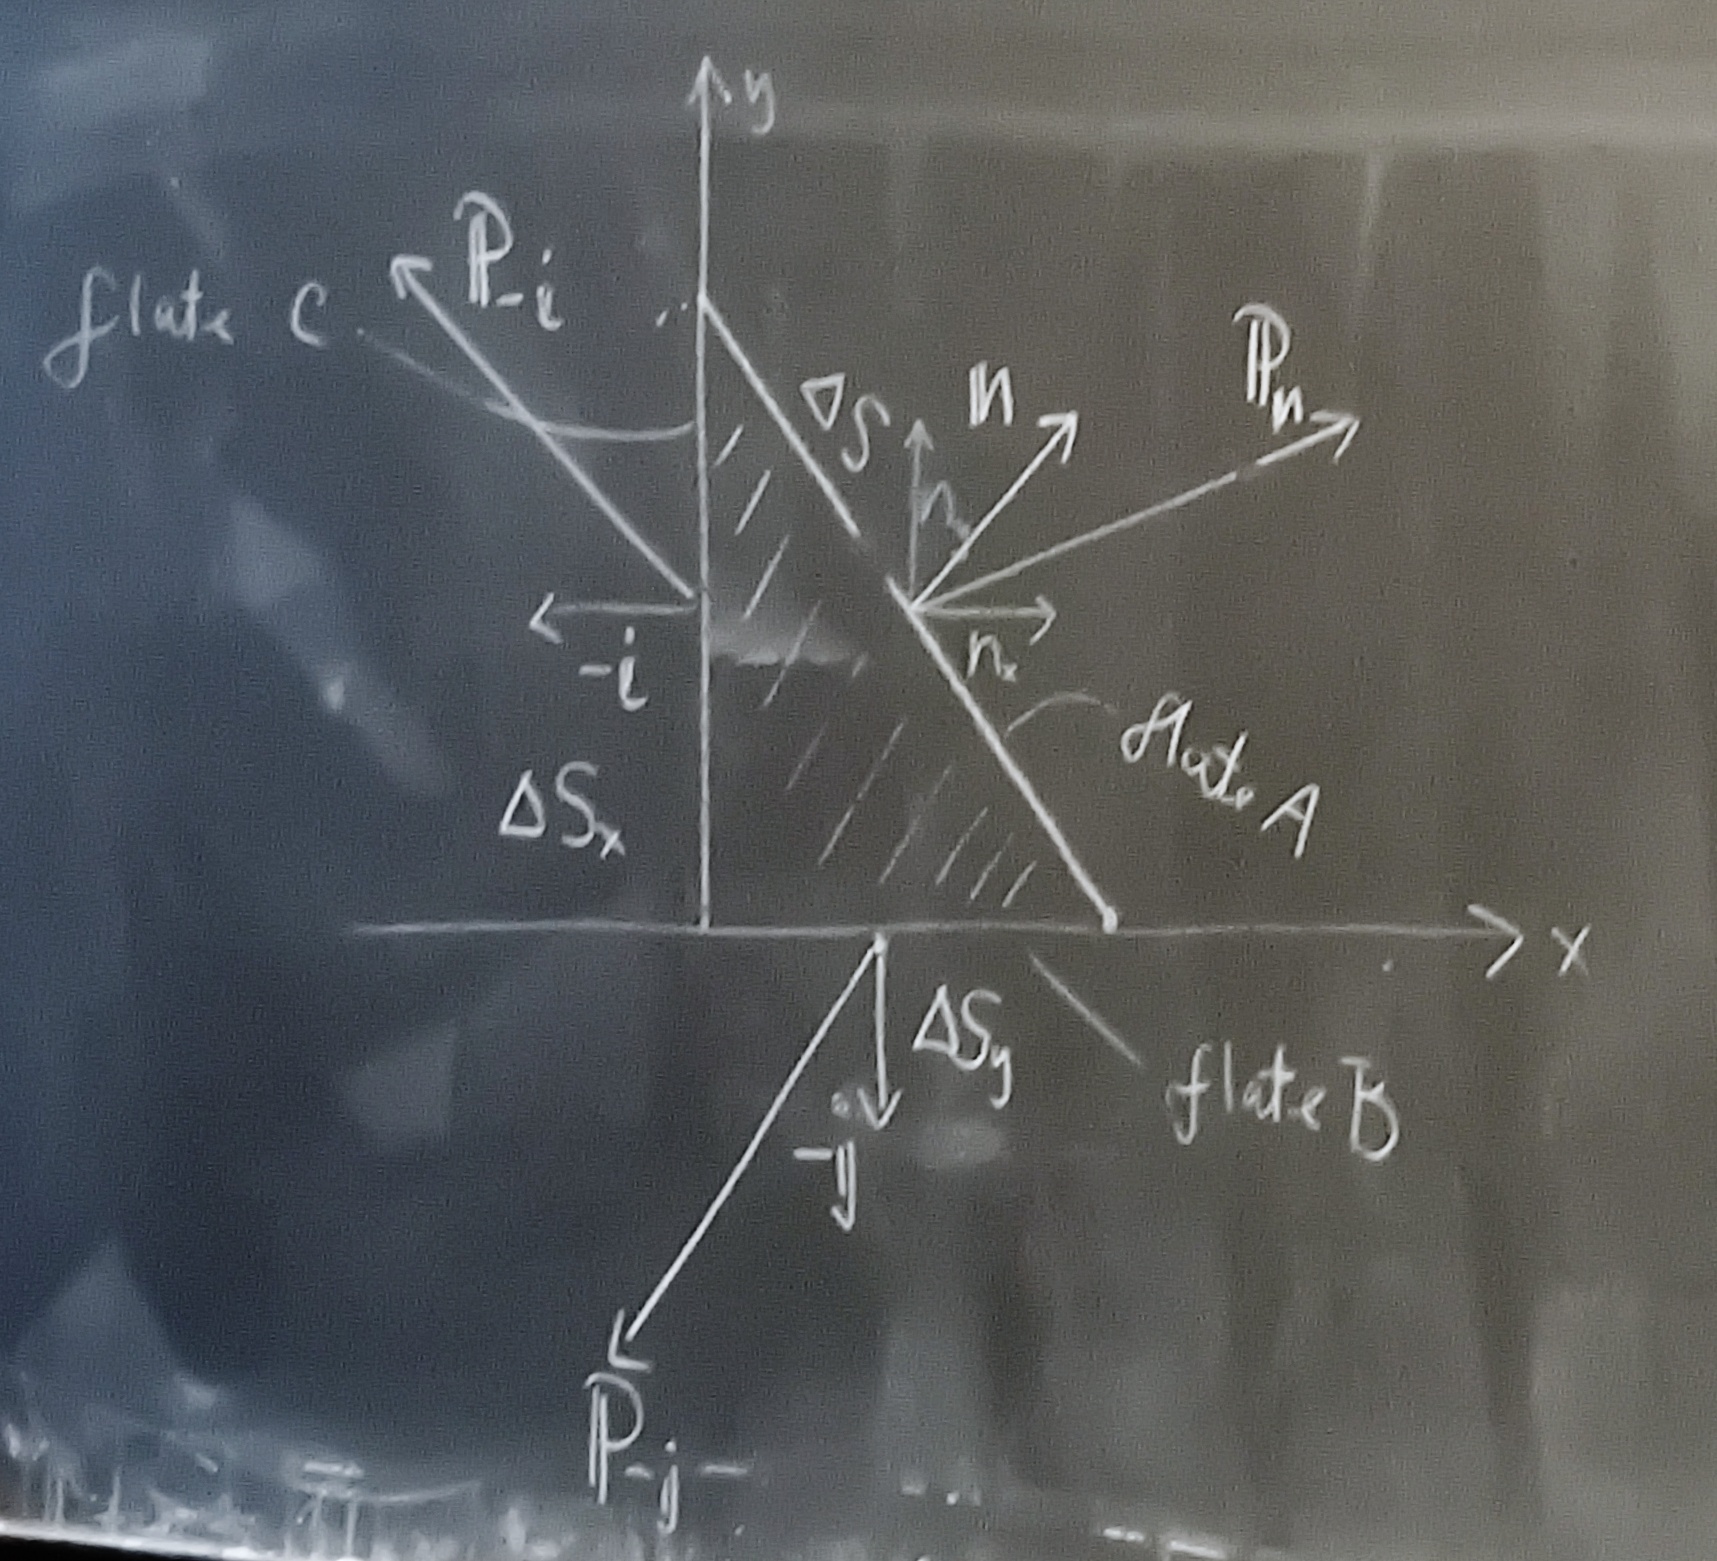 y
ℙ-i
flate C
ΔS
𝕟
ℙn
n
-i
nx
flate A
ΔSx
x
ΔSy
-j
flate B
ℙ-j